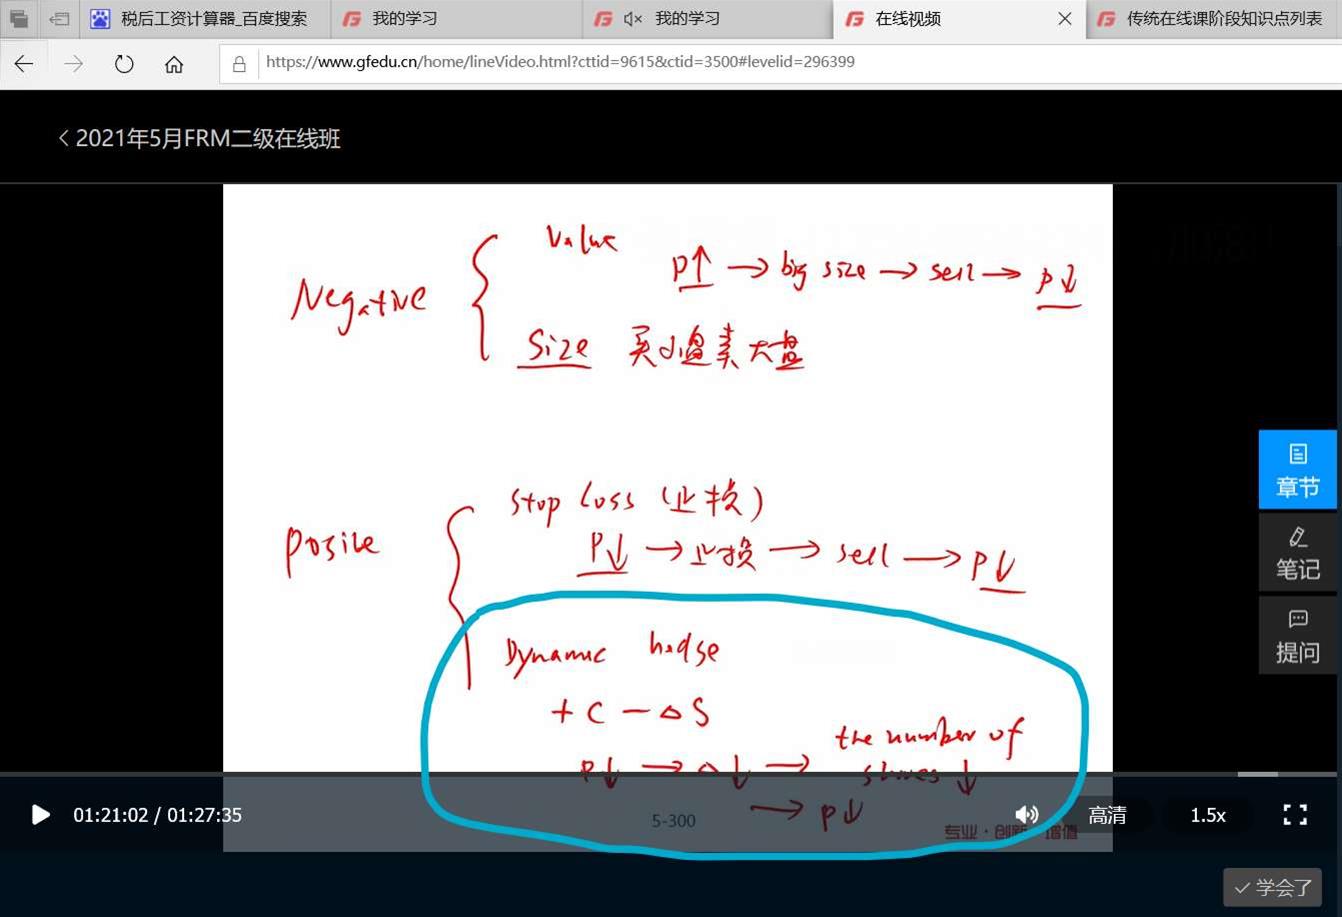 税后工资计算器_百度搜索
我的学习
我的学习
在线视频
传统在线课阶段知识点列表
https://www.gfedu.cn/home/lineVideo.html?cttid=9615&ctid=3500#levelid=296399
2021年5月FRM二级在线班
Negative
Value
P↑ → big size → sell → P↓
Size 买小盘卖大盘
章节
笔记
提问
Positive
Stop loss (止损)
P↓ → 止损 → sell → P↓
Dynamic hedge
+ C - △ S
P↓ → △↓ → the number of
shares ↓
→ P↓
01:21:02 / 01:27:35
5-300
高清
1.5x
专业·创新·增值
学会了